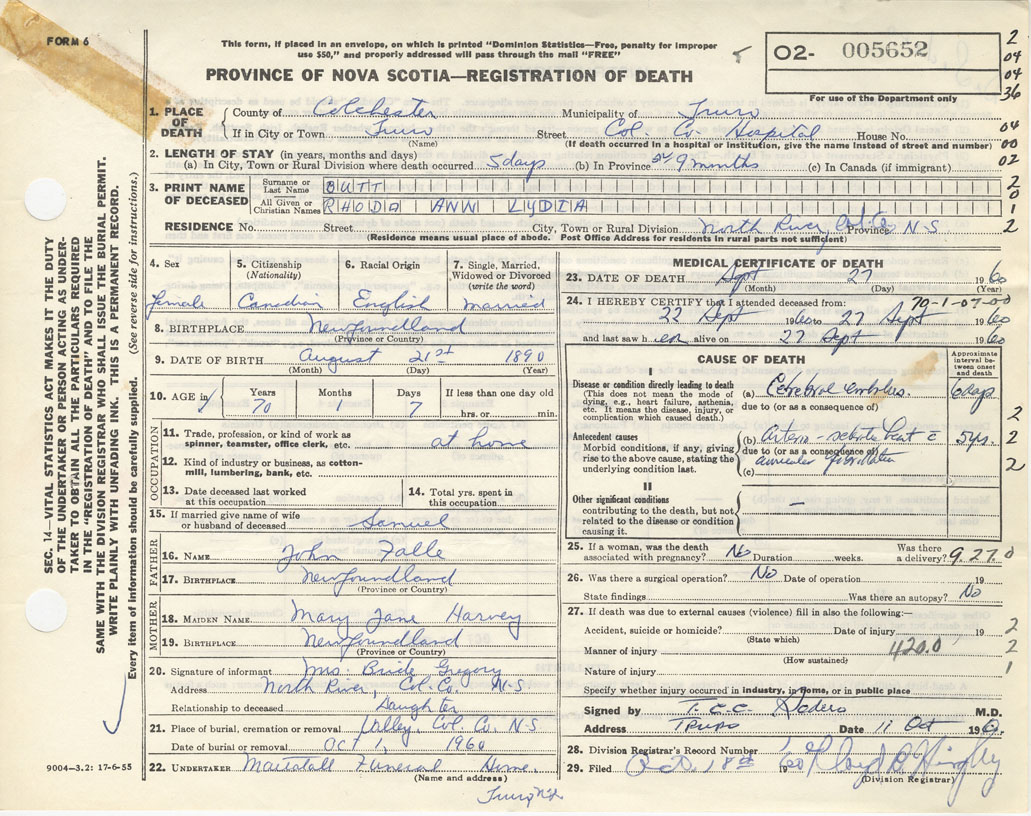 FORM 6
This form, if placed in an envelope, on which is printed "Dominion Statistics—Free, penalty for improper
use $50," and properly addressed will pass through the mail "FREE"
PROVINCE OF NOVA SCOTIA—REGISTRATION OF DEATH
O2- 005652
For use of the Department only
2
04
04
36
04
00
02
2
0
1
2
SEC. 14—VITAL STATISTICS ACT MAKES IT THE DUTY
OF THE UNDERTAKER OR PERSON ACTING AS UNDER-
TAKER TO OBTAIN ALL THE PARTICULARS REQUIRED
IN THE "REGISTRATION OF DEATH" AND TO FILE THE
SAME WITH THE DIVISION REGISTRAR WHO SHALL ISSUE THE BURIAL PERMIT.
WRITE PLAINLY WITH UNFADING INK. THIS IS A PERMANENT RECORD.
Every item of information should be carefully supplied. (See reverse side for instructions.)
1. PLACE OF DEATH
County of Colchester Municipality of Truro
If in City or Town Truro Street Col. Co. Hospital House No.
(Name) (If death occurred in a hospital or institution, give the name instead of street and number)
2. LENGTH OF STAY (in years, months and days)
(a) In City, Town or Rural Division where death occurred 5 days (b) In Province 9 months (c) In Canada (if immigrant)
3. PRINT NAME OF DECEASED
Surname or Last Name BUTT
All Given or Christian Names RHODA ANN LYDIA
RESIDENCE No. Street City, Town or Rural Division North River, Col. Co Province N-S
(Residence means usual place of abode. Post Office Address for residents in rural parts not sufficient)
4. Sex
female
5. Citizenship (Nationality)
Canadian
6. Racial Origin
English
7. Single, Married, Widowed or Divorced (write the word)
married
8. BIRTHPLACE Newfoundland
(Province or Country)
9. DATE OF BIRTH August 21st 1890
(Month) (Day) (Year)
10. AGE in
Years 70
Months 1
Days 7
If less than one day
hrs. or min.
OCCUPATION
11. Trade, profession, or kind of work as
spinner, teamster, office clerk, etc. at home
12. Kind of industry or business, as cotton-
mill, lumbering, bank, etc.
13. Date deceased last worked
at this occupation
14. Total yrs. spent in
this occupation
15. If married give name of wife
or husband of deceased Samuel
FATHER
16. NAME John Falle
17. BIRTHPLACE Newfoundland
(Province or Country)
MOTHER
18. MAIDEN NAME Mary Jane Harvey
19. BIRTHPLACE Newfoundland
(Province or Country)
20. Signature of informant Mrs. Bride Gregory
Address North River, Col. Co. N-S
Relationship to deceased Daughter
21. Place of burial, cremation or removal Valley, Col. Co. N-S
Date of burial or removal Oct 1, 1960
22. UNDERTAKER Mattatall Funeral Home,
(Name and address)
Truro N.S.
9004—3.2: 17-6-55
MEDICAL CERTIFICATE OF DEATH
23. DATE OF DEATH Sept 27 1960
(Month) (Day) (Year)
24. I HEREBY CERTIFY that I attended deceased from: 70-1-07-00
22 Sept 1960 to 27 Sept 1960
and last saw her alive on 27 Sept 1960
CAUSE OF DEATH
Approximate interval between onset and death
I
Disease or condition directly leading to death
(This does not mean the mode of dying, e.g., heart failure, asthenia, etc. It means the disease, injury, or complication which caused death.)
(a) Cerebral embolus. 6 days
due to (or as a consequence of)
Antecedent causes
Morbid conditions, if any, giving rise to the above cause, stating the underlying condition last.
(b) Arterio-sclerotic heart c̄ 5 yrs.
due to (or as a consequence of)
auricular fibrillation
(c)
II
Other significant conditions
contributing to the death, but not related to the disease or condition causing it.
—
2
2
2
25. If a woman, was the death associated with pregnancy? No Duration weeks. Was there a delivery? 9.27.0
26. Was there a surgical operation? No Date of operation 19
State findings Was there an autopsy? No
27. If death was due to external causes (violence) fill in also the following:—
Accident, suicide or homicide? Date of injury 19 2
(State which)
Manner of injury 420.0 2
(How sustained)
Nature of injury 1
Specify whether injury occurred in industry, in home, or in public place
Signed by T.C.C. M.D.
Address TRURO Date 11 Oct 1960
28. Division Registrar's Record Number
29. Filed Oct. 18th 1960
(Division Registrar)